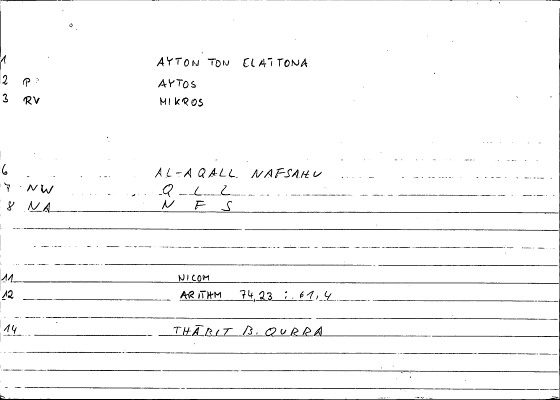 1 AYTON TON ELATTONA
2 P AYTOS
3 RV MIKROS
6 AL-AQALL NAFSAHU
7 NW Q L L
8 NA N F S
11 NICOM
12 ARITHM 74,23 : 61,4
14 THĀBIT B. QURRA